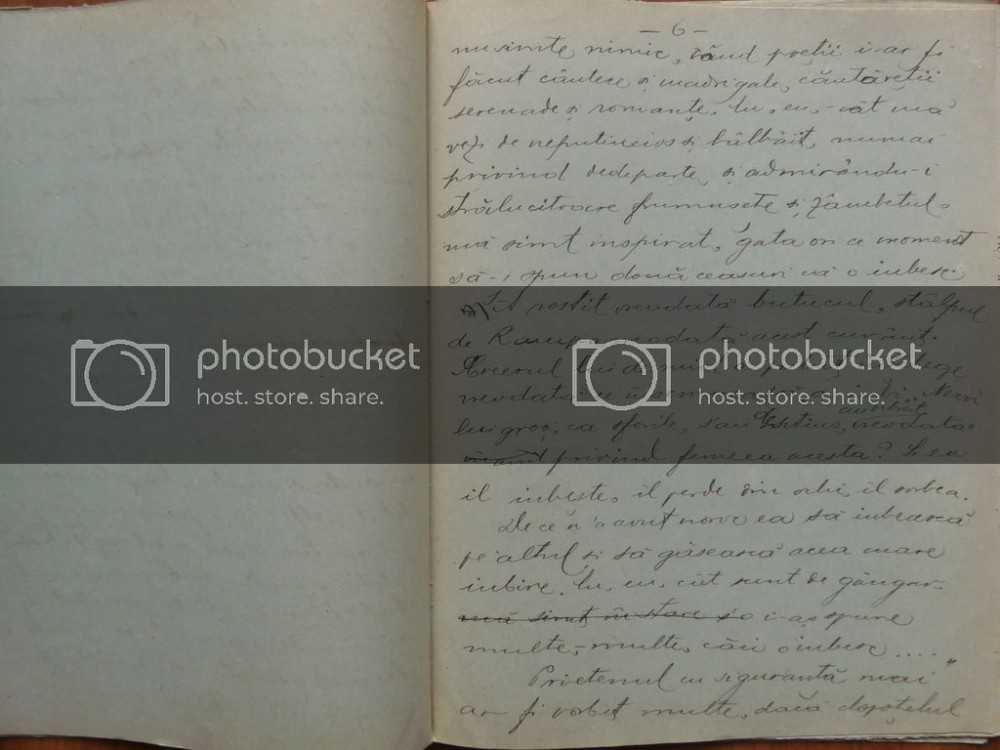 — 6 —
nu simte nimic, când poeții i-ar fi
făcut cântece și madrigale, cântăreții
serenade și romanțe. Eu, eu, cât mă
vezi de neputincios și bâlbâit, numai
privind dedeparte, și admirându-i
strălucitoare frumusețe și zâmbetul
mă simt inspirat, gata ori ce moment
să-i spun două ceasuri că o iubesc.
A rostit vreodată butucul, stâlpul
de vreodată acest cuvânt.
Creerul lui
vreodată Nervi
lui groși, ca sforile, s'au vreodată
privind femeea acesta? Și ea
îl iubește, îl pierde din ochi, îl soarbea.
De ce n'a avut noroc ea să iubească
pe altul și să găsească acea mare
iubire. Eu, eu, cât sunt de gângav
mă simt în stare s'o i-aș spune
multe, multe, căci o iubesc ....”
Prietenul cu siguranță mai
ar fi vorbit multe, dacă clopoțelul
photobucket
host. store. share.
photobucket
host. store. share.